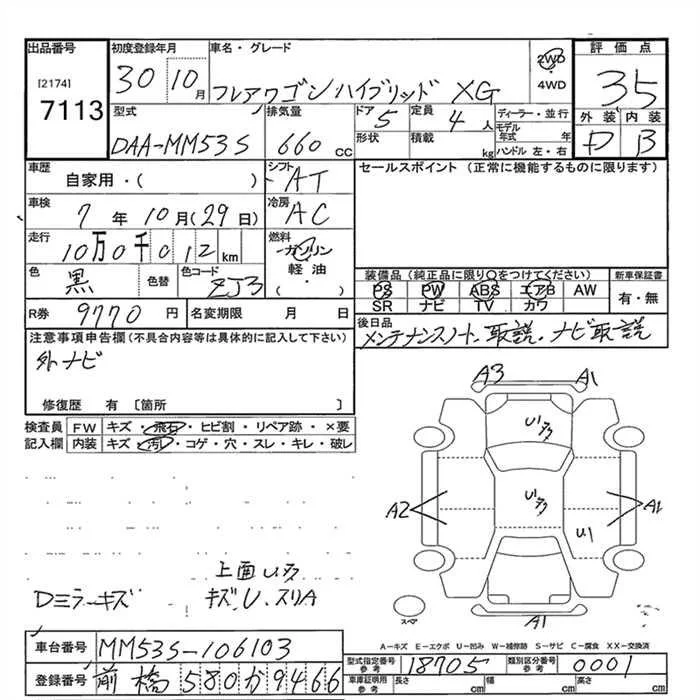 出品番号 初度登録年月 車名・グレード 評価点
[2174] 7113 30 10月 フレアワゴンハイブリッド XG 2WD ・ 4WD 35
型式 排気量 ドア 定員 ディーラー・並行 外装 内装
DAA-MM53S 660 cc 5 4人 モデル年式 年 D B
形状 積載 kg ハンドル 左・右
車歴 自家用・( ) シフト AT セールスポイント (正常に機能するものに限ります)
車検 7年10月(29日) 冷房 AC
走行 10万0千012km 燃料 ガソリン 軽油 ・( )
色 黒 色替 色コード ZJ3 装備品(純正品に限り○をつけてください) 新車保証書
PS PW ABS エアB AW 有・無
SR ナビ TV カワ
R券 9770円 名変期限 月 日 後日品
メンテナンスノート、取説、ナビ取説
注意事項申告欄(不具合内容等は具体的に記入して下さい)
外ナビ
修復歴 有 〔箇所 〕
検査員 FW キズ・飛石・ヒビ割・リペア跡・×要
記入欄 内装 キズ・汚レ・コゲ・穴・スレ・キレ・破レ
A3 A1
Uﾉﾀ
A2 Uﾉﾀ A1
U1
A1
スペア
上面Uﾉﾀ
Dミラーキズ キズU、スリA
A-キズ E-エクボ U-凹み W-補修跡 S-サビ C-腐食 XX-交換済
車台番号 MM53S-106103
型式指定番号 参考 18705 類別区分番号 参考 0001
登録番号 前橋580か9466
車庫証明用 参考 長さ cm 幅 cm 高さ cm